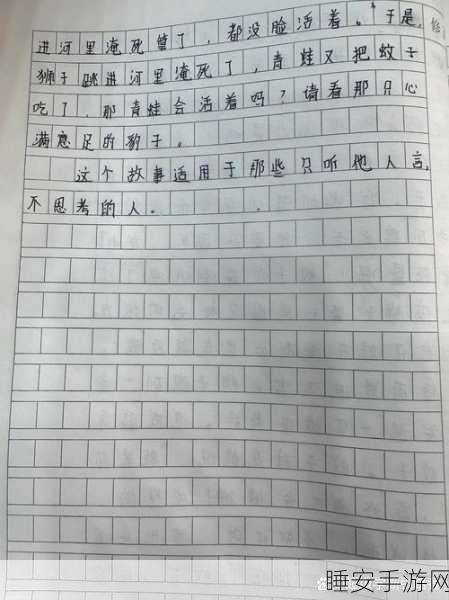 进河里淹死算了，都没脸活着。”于是，
狮子跳进河里淹死了，青蛙又把蚊子
吃了，那青蛙会活着吗？请看那只心
满意足的豹子。
这个故事适用于那些只听他人言，
不思考的人。
睡安手游网